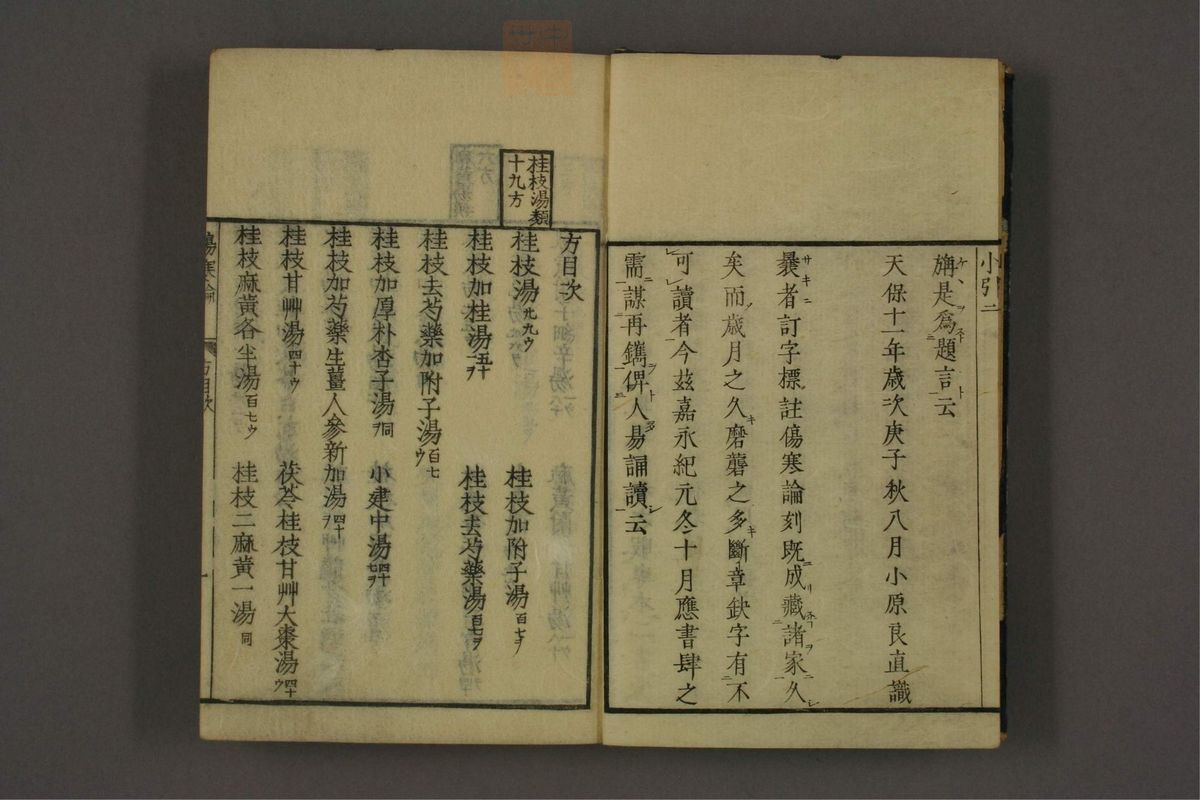 小引二
旃是為題言云
天保十一年歲次庚子秋八月小原良直識
曩者訂字標註傷寒論刻既成藏諸家久
矣而歲月之久磨礱之多斷章缺字有不
可讀者今茲嘉永紀元冬十月應書肆之
需謀再鐫俾人易誦讀云
桂枝湯類
十九方
方目次
桂枝湯 九ウ 桂枝加附子湯 百七ヲ
桂枝加桂湯 五十一ヲ 桂枝去芍藥湯 百七ヲ
桂枝去芍藥加附子湯 百七ウ
桂枝加厚朴杏子湯 同ヲ 小建中湯 四十七ヲ
桂枝加芍藥生薑人參新加湯 四十ヲ
桂枝甘艸湯 四十ウ 茯苓桂枝甘艸大棗湯 四十ウ
桂枝麻黃各半湯 百七ウ 桂枝二麻黃一湯 同
傷寒論 方目次 一